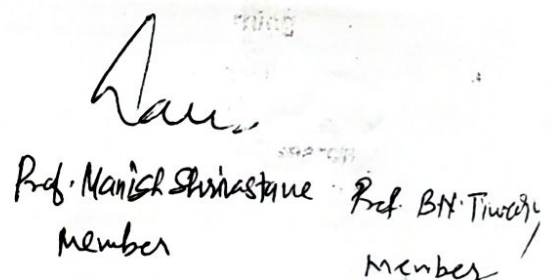 Prof. Manish Shrivastave
Member
Prof. BN. Tiwari
Member